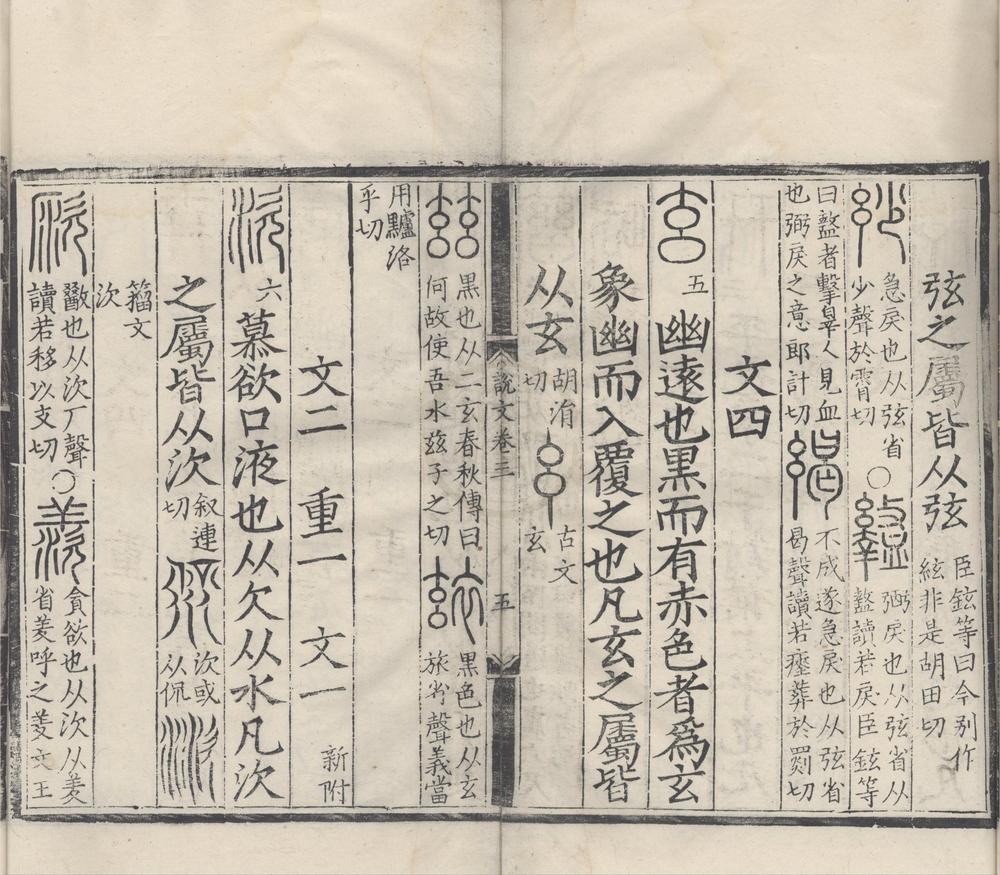 弦之屬皆从弦 臣鉉等曰今别作
絃非是胡田切
急戾也从弦省
少聲於霄切 ○ 弼戾也从弦省从
盭讀若戾臣鉉等
曰盭者擊辠人見血
也弼戾之意郎計切 不成遂急戾也从弦省
曷聲讀若瘞葬於罽切
文四
玄 五 幽遠也黒而有赤色者爲玄
象幽而入覆之也凡玄之屬皆
从玄 胡涓
切 古文
玄
說文卷三
五
兹 黒也从二玄春秋傳曰
何故使吾水兹子之切 玈 黒色也从玄
旅省聲義當
用黸洛
乎切
文二 重一 文一 新附
㳄 六 慕欲口液也从欠从水凡㳄
之屬皆从㳄 叙連
切 㳄或
从侃
籀文
㳄
㳄也从㳄厂聲
讀若移以支切 ○ 羨 貪欲也从㳄从羑
省羑呼之羑文王